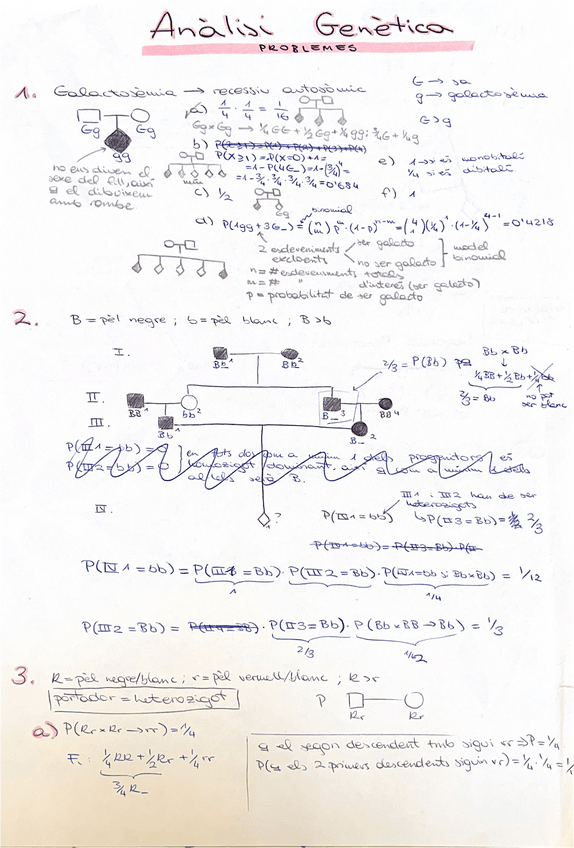 Anàlisi Genètica
PROBLEMES
1. Galactosèmia → recessiu autosòmic
G → sa
g → galactosèmia
G>g
Gg Gg
gg
no ens diuen el
sexe del fill, així
q el dibuixem
amb rombe
a) 1/4 · 1/4 = 1/16
Gg×Gg → 1/4 GG + 1/2 Gg + 1/4 gg; 3/4 G + 1/4 g
b) P(X≥1)=P(1)+P(2)+P(3)+P(4)
P(X≥1)=-P(X=0)+1=
=1-P(4G_)=1-(3/4)^4=
=1-3/4·3/4·3/4·3/4=0'684
c) 1/2
Gg
e) 1→si és monozitotic
1/4 si és dizitotic
f) 1
binomial
d) P(1gg+3G_)=(n m) p^m·(1-p)^n-m=(4 1)(1/4)^1·(1-1/4)^4-1=0'4218
2 esdeveniments excloents
ser galacto
no ser galacto
model binomial
n = # esdeveniments totals
m = # " d'interès (ser galacto)
p = probabilitat de ser galacto
2. B = pèl negre ; b = pèl blanc ; B>b
I. Bb 1 Bb 2
2/3 = P(Bb)
Bb × Bb
1/4 BB + 1/2 Bb + 1/4 bb
2/3 = Bb
no pot
ser blanc
II. BB 1 bb 2 B_ 3 BB 4
III. Bb 1 B_ 2
P(III1=bb)=0
P(III2=bb)=0
en tots dos com a mínim 1 dels progenitors és
homozigot dominant, així q com a mínim 1 dels
al·lels serà B.
IV. ?
P(IV1=bb)
III1 i III2 han de ser
heterozigots
↳P(II3=Bb)= 2/3
P(IV1=bb)=P(II3=Bb)·P(II
P(IV1=bb) = P(III1=Bb) · P(III2=Bb) · P(IV1=bb si Bb×Bb) = 1/12
1 1/4
P(III2=Bb) = P(II4=BB) · P(II3=Bb) · P(Bb×BB→Bb) = 1/3
2/3 1/2
3. R = pèl negre/blanc ; r = pèl vermell/blanc ; R>r
portador = heterozigot
P Rr Rr
a) P(Rr×Rr→rr)=1/4
F₁: 1/4 RR + 1/2 Rr + 1/4 rr
3/4 R_
q el segon descendent tmb sigui rr ⇒ P=1/4
P(q els 2 primers descendents siguin rr)=1/4·1/4=1/